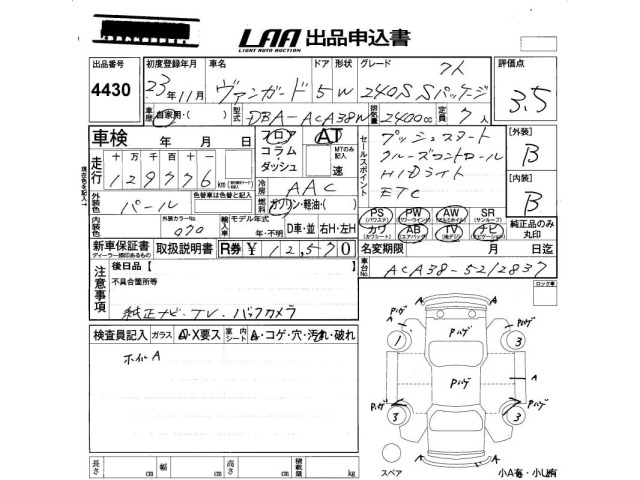 LAA 出品申込書
LIGHT AUTO AUCTION
出品番号 4430
初度登録年月 23年11月
車名 ヴァンガード
ドア 形状 5W
グレード 7人
240S Sパッケージ
評価点 3.5
車歴 自家用・( )
型式 DBA-ACA38W
排気量 2400cc
定員 7人
車検 年 月 日
フロア AT
コラム・ダッシュ
MTのみ記入 速
走行 十 万 千 百 十
129776 km
セールスポイント
プッシュスタート
クルーズコントロール
HIDライト
ETC
[外装] B
[内装] B
冷房 AAC
燃料 ガソリン・軽油・( )
外装色 パール
色替車は色替と記入
内装色
外装カラーNo. 070
輸入車 モデル年式 年・不明
D車・並 右H・左H
PS (パワステ) PW (パワーウインド) AW (アルミホイル) SR (サンルーフ)
カワ (カワシート) AB (エアバッグ) TV (地デジ) ナビ (ナビゲーション)
純正品のみ丸印
新車保証書 取扱説明書 R券 ¥12,570
ディーラー捺印あるもの
名変期限 月 日迄
車台No. ACA38-5212837
注意事項
後日品 [ ]
不具合箇所等
純正ナビ・TV・バックカメラ
ロック車
検査員記入 ガラス A・X要ス 室内シート A・コゲ・穴・汚れ・破れ
ホイルA
A A
Pハゲ Pハゲ Pハゲ
1 3
Pハゲ
A
Pハゲ Pハゲ
3 3
A A
スペア
小A有・小U有
長さ cm 幅 cm 高さ cm 積載量 kg